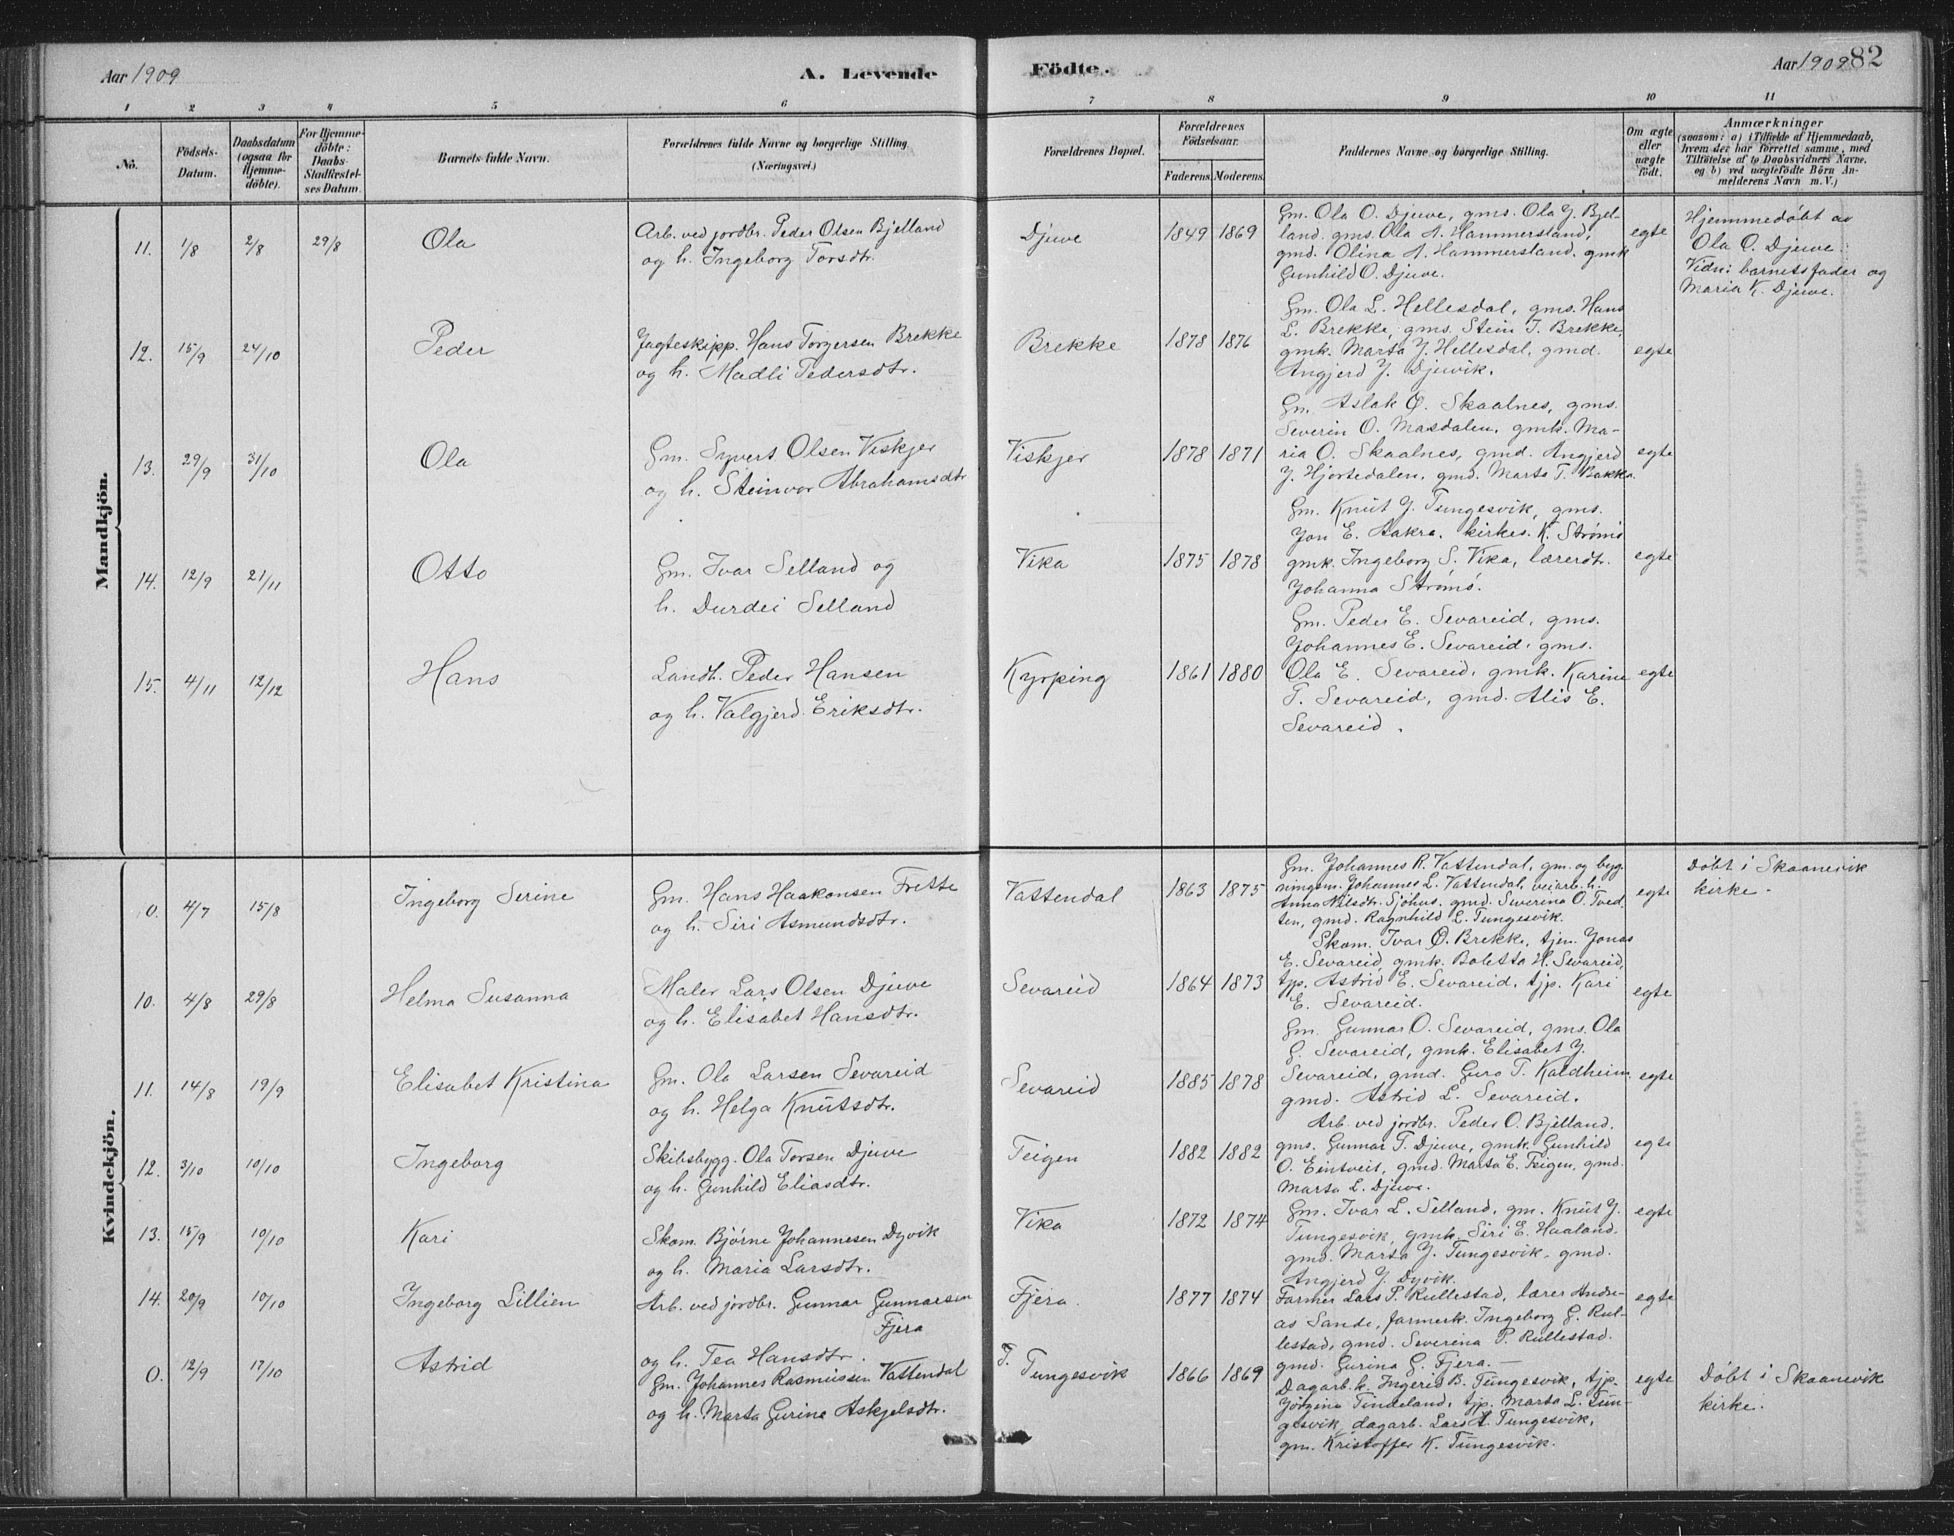 Aar 1909
A. Levende
Födte.
Aar 1909
82
1 2 3 4 5 6 7 8 9 10 11
No.
Födsels-
Datum.
Daabsdatum
(ogsaa for
Hjemme-
döbte).
For Hjemme-
döbte:
Daabs-
Stadfæstel-
ses Datum.
Barnets fulde Navn.
Forældrenes fulde Navne og borgerlige Stilling
(Næringsvei.)
Forældrenes Bopæl.
Forældrenes
Födselsaar.
Faderens. Moderens.
Faddernes Navne og borgerlige Stilling.
Om ægte
eller
uægte
födt.
Anmærkninger
(saasom: a) i Tilfælde af Hjemmedaab,
hvem der har forrettet samme, med
Tilföielse af to Daabsvidners Navne,
og b) ved uægtefödte Börn An-
melderens Navn m.V.)
Mandkjön.
11. 1/8 2/8 29/8 Ola
Arb. ved jordbr. Peder Olsen Bjelland
og h. Ingeborg Torsdtr.
Djuve 1849 1869
Gm. Ola O. Djuve, gms. Ola J. Bjel-
land. gms. Ola A. Hammersland,
gmd. Olina A. Hammersland. gmk
Gunhild O. Djuve.
egte
Hjemmedøbt av
Ola O. Djuve.
Vidn: barnets fader og
Maria K. Djuve.
12. 15/9 24/10 Peder
Jagteskipp. Hans Torgersen Brekke
og h. Madli Pedersdtr.
Brekke 1878 1876
Gm. Ola L. Hellesdal, gms. Hans
L. Brekke, gms. Stein T. Brekke,
gmk. Marta J. Hellesdal, gmd.
Angjerd J. Djuvik.
egte
13. 29/9 31/10 Ola
Gm. Syvert Olsen Viskjer
og h. Steinvor Abrahamsdtr
Viskjer 1878 1871
Gm. Aslak O. Skaalnes, gms.
Severin O. Masdalen, gmk. Ma-
ria O. Skaalnes, gmd. Angjerd
J. Hjortedalen, gmd. Marta T. Bakka.
egte
14. 12/9 21/11 Otto
Gm. Ivar Selland og
h. Durdei Selland
Vika 1875 1878
Gm. Knut J. Tungesvik, gms.
Jon E. Aakra. kirkes. K. Strømø
gmk. Ingeborg S. Vika, lærerdtr.
Johanna Strømø.
egte
15. 4/11 12/12 Hans
Landh. Peder Hansen
og h. Valgjerd Eriksdtr.
Kyrping 1861 1880
Gm. Peder E. Sevareid, gms.
Johannes E. Sevareid, gms.
Ola E. Sevareid, gmk. Karine
T. Sevareid, gmd. Alis E.
Sevareid.
egte
Kvindekjön.
0. 4/7 15/8 Ingeborg Serine
Gm. Hans Haakonsen Frette
og h. Siri Asmundsdtr.
Vattendal 1863 1875
Gm. Johannes R. Vattendal, gm. og byg-
ningsm. Johannes L. Vattendal, veiarb. h.
Anna Nilsdtr. Sjøhus. gmd. Severina O. Tved-
ten, gmd. Ragnhild L. Tungesvik.
egte
Døbt i Skaanevik
kirke.
10. 4/8 29/8 Helma Susanna
Maler Lars Olsen Djuve
og h. Elisabet Hansdtr.
Sevareid 1864 1873
Skom. Ivar O. Brekke, tjen. Jonas
E. Sevareid, gmk. Boletta H. Sevareid,
tjp. Astrid E. Sevareid, tjp. Kari
E. Sevareid.
egte
11. 14/8 19/9 Elisabet Kristina
Gm. Ola Larsen Sevareid
og h. Helga Knutsdtr.
Sevareid 1885 1878
Gm. Gunnar O. Sevareid, gms. Ola
G. Sevareid, gmk. Elisabet J.
Sevareid, gmd. Guro T. Kaldheim.
gmd. Astrid L. Sevareid.
egte
12. 3/10 10/10 Ingeborg
Skibsbygg. Ola Torsen Djuve
og h. Gunhild Eliasdtr.
Teigen 1882 1882
Arb. ved jordbr. Peder O. Bjelland.
gms. Gunnar T. Djuve, gmk. Gunhild
O. Eintveit, gmd. Marta E. Teigen, gmd.
Marta L. Djuve.
egte
13. 15/9 10/10 Kari
Skom. Bjørne Johannesen Dyvik
og h. Maria Larsdtr.
Vika 1872 1874
Gm. Ivar L. Selland, gm. Knut J.
Tungesvik, gmk. Siri E. Haaland.
gmd. Marta J. Tungesvik, gmd.
Angjerd J. Dyvik.
egte
14. 20/9 10/10 Ingeborg Lillien
Arb. ved jordbr. Gunnar Gunnarsen
Fjera
og h. Tea Hansdtr.
Fjera. 1877 1874
Farmer Lars P. Rullestad, lærer Andre-
as Sande, farmerk. Ingeborg G. Rul-
lestad, gmd. Severina P. Rullestad.
gmd. Gurina G. Fjera.
egte
0. 12/9 17/10 Astrid
Gm. Johannes Rasmussen Vattendal
og h. Marta Gurina Askjelsdtr.
T. Tungesvik 1866 1869
Dagarb. h. Ingerid B. Tungesvik, tjp.
Jørgina Tindeland, tjp. Marta L. Tun-
gesvik, dagarb. Lars A. Tungesvik,
gm. Kristoffer K. Tungesvik.
egte
Døbt i Skaanevik
kirke.